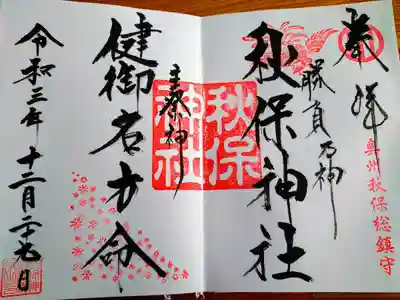 奉拝
奥州秋保総鎮守
勝負の神
秋保神社
秋保
神社
主祭神
健御名方命
令和三年十二月二十九日